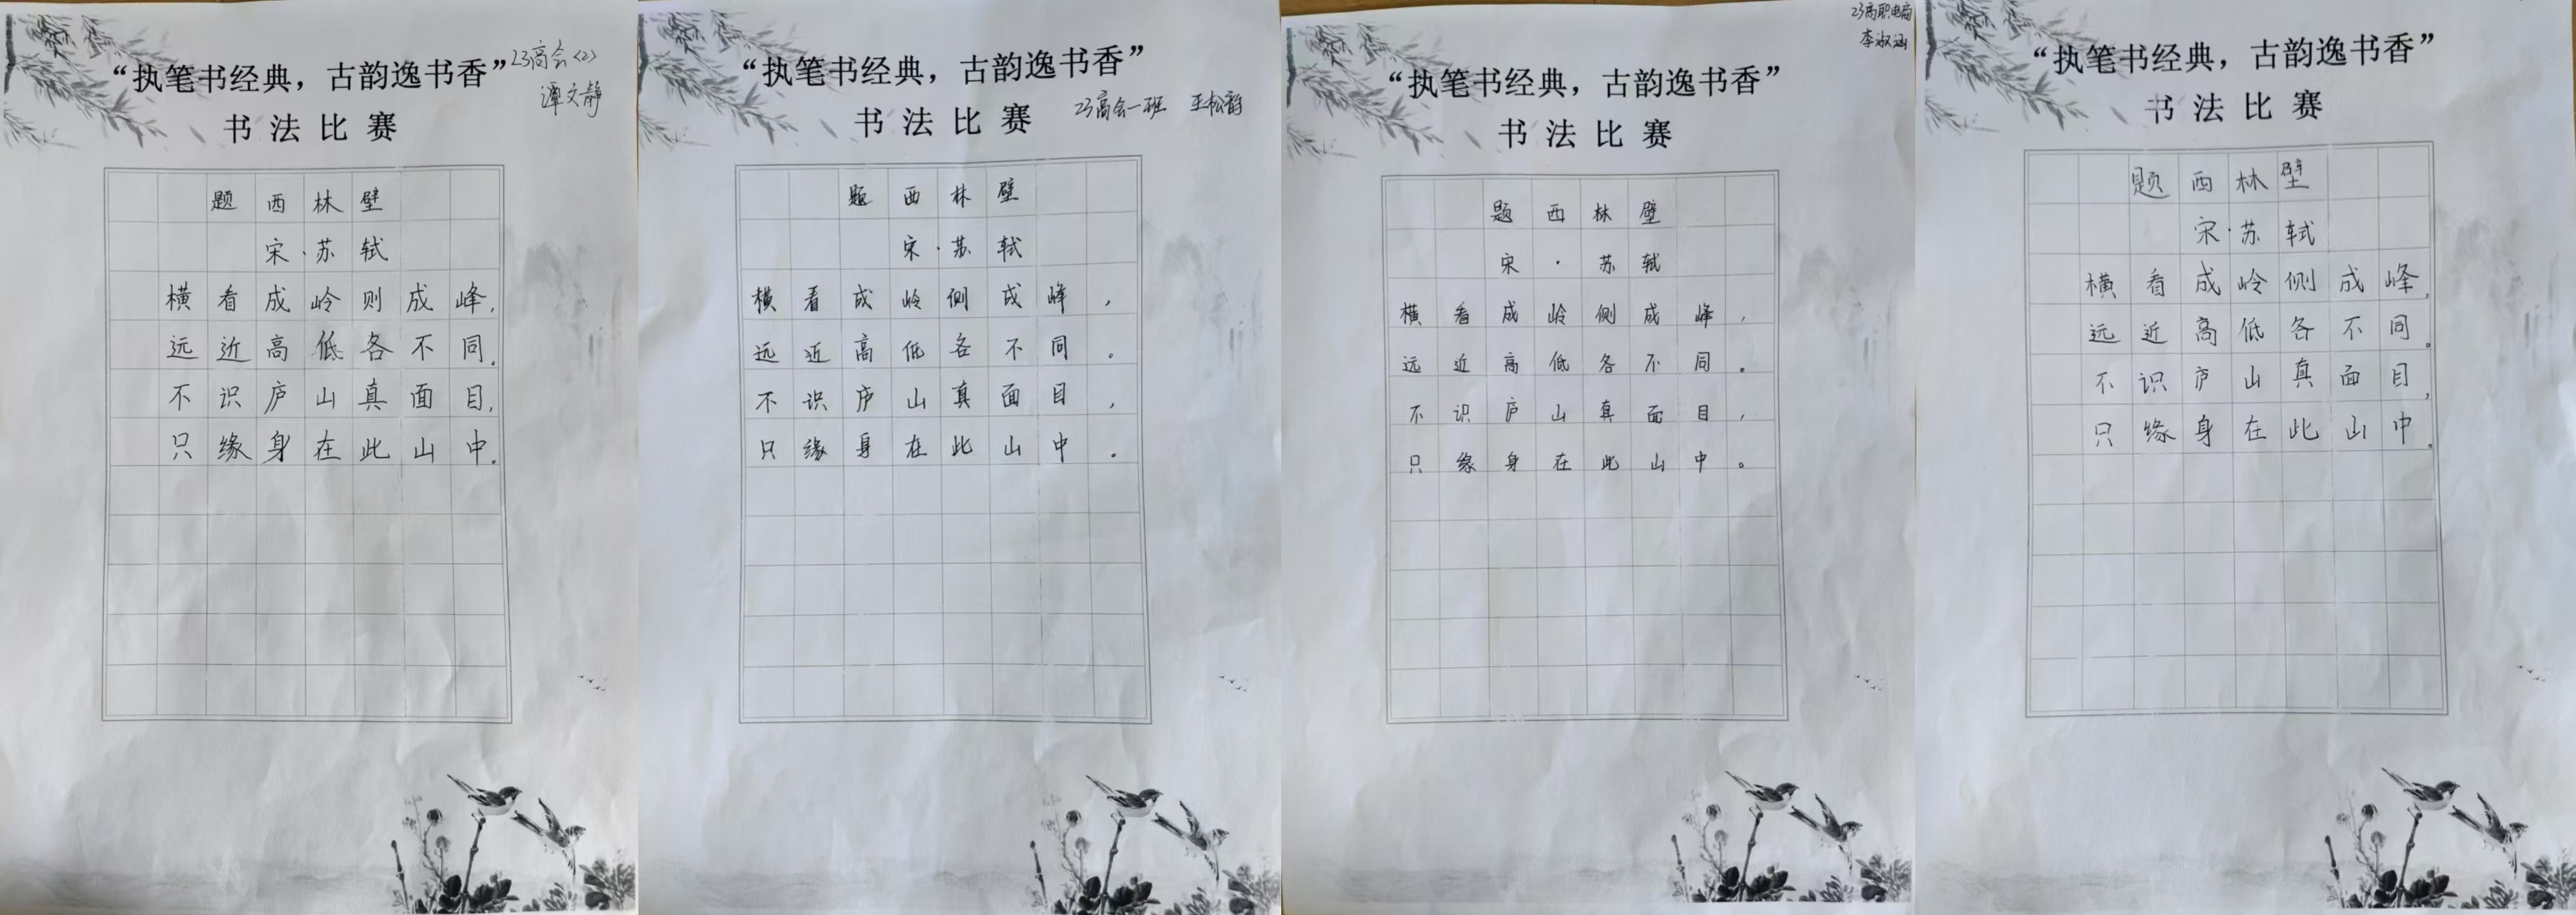 “执笔书经典，古韵逸书香”
23高会<2>
谭文静
书法比赛
题西林壁
宋·苏轼
横看成岭则成峰，
远近高低各不同。
不识庐山真面目，
只缘身在此山中。
“执笔书经典，古韵逸书香”
书法比赛
23高会一班 王松韵
题西林壁
宋·苏轼
横看成岭侧成峰，
远近高低各不同。
不识庐山真面目，
只缘身在此山中。
23高职电商
李淑涵
“执笔书经典，古韵逸书香”
书法比赛
题西林壁
宋·苏轼
横看成岭侧成峰，
远近高低各不同。
不识庐山真面目，
只缘身在此山中。
“执笔书经典，古韵逸书香”
书法比赛
题西林壁
宋·苏轼
横看成岭侧成峰，
远近高低各不同。
不识庐山真面目，
只缘身在此山中。